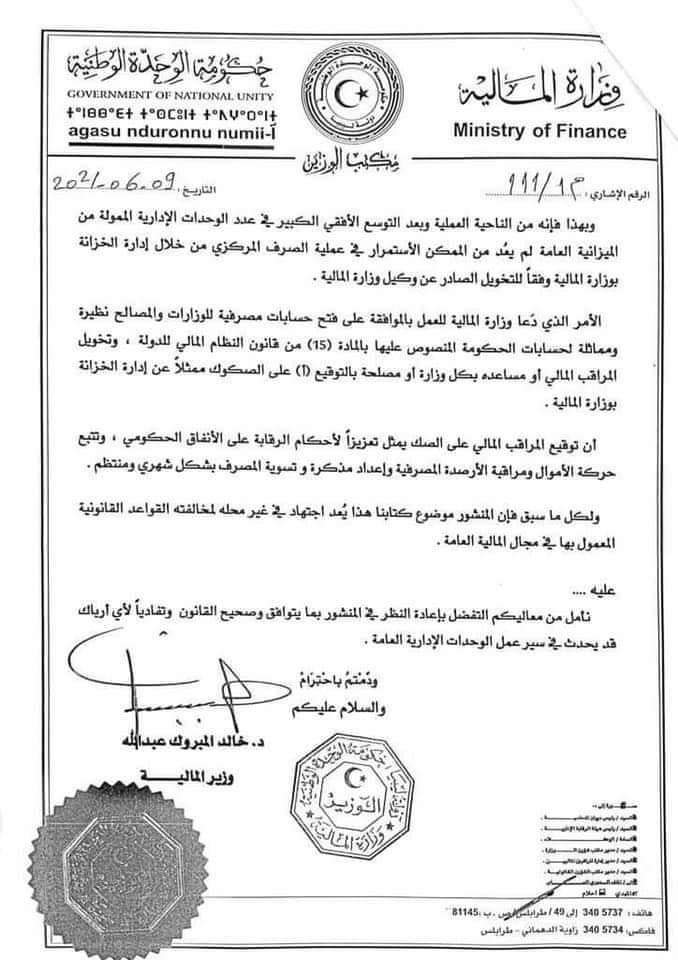 حكومة الوحدة الوطنية
GOVERNMENT OF NATIONAL UNITY
agasu nduronnu numii-Ī
وزارة المالية
Ministry of Finance
مكتب الوزير
الرقم الإشاري :
التاريخ : 2021.06.09
وبهذا فإنه من الناحية العملية وبعد التوسع الأفقي الكبير في عدد الوحدات الإدارية الممولة من
الميزانية العامة لم يعُد من الممكن الأستمرار في عملية الصرف المركزي من خلال إدارة الخزانة
بوزارة المالية وفقاً للتخويل الصادر عن وكيل وزارة المالية .
الأمر الذي دَعا وزارة المالية للعمل بالموافقة على فتح حسابات مصرفية للوزارات والمصالح نظيرة
ومماثلة لحسابات الحكومة المنصوص عليها بالمادة (15) من قانون النظام المالي للدولة ، وتخويل
المراقب المالي أو مساعده بكل وزارة أو مصلحة بالتوقيع (أ) على الصكوك ممثلاً عن إدارة الخزانة
بوزارة المالية .
أن توقيع المراقب المالي على الصك يمثل تعزيزاً لأحكام الرقابة على الأنفاق الحكومي ، وتتبع
حركة الأموال ومراقبة الأرصدة المصرفية وإعداد مذكرة و تسوية المصرف بشكل شهري ومنتظم .
ولكل ما سبق فإن المنشور موضوع كتابنا هذا يُعد اجتهاد في غير محله لمخالفته القواعد القانونية
المعمول بها في مجال المالية العامة .
عليه ....
نأمل من معاليكم التفضل بإعادة النظر في المنشور بما يتوافق وصحيح القانون وتفادياً لأي أرباك
قد يحدث في سير عمل الوحدات الإدارية العامة .
ودُمْتُمْ باحْتِرَامْ
والسلام عليكم
د. خالد المبروك عبدالله
وزير المالية
حكومة الوحدة الوطنية
ليبيا
الوزير
وزارة المالية
هاتف : 5737 340 إلى 49 / طرابلس / ص . ب : 81145
فاكس : 5734 340 زاوية الدهماني - طرابلس